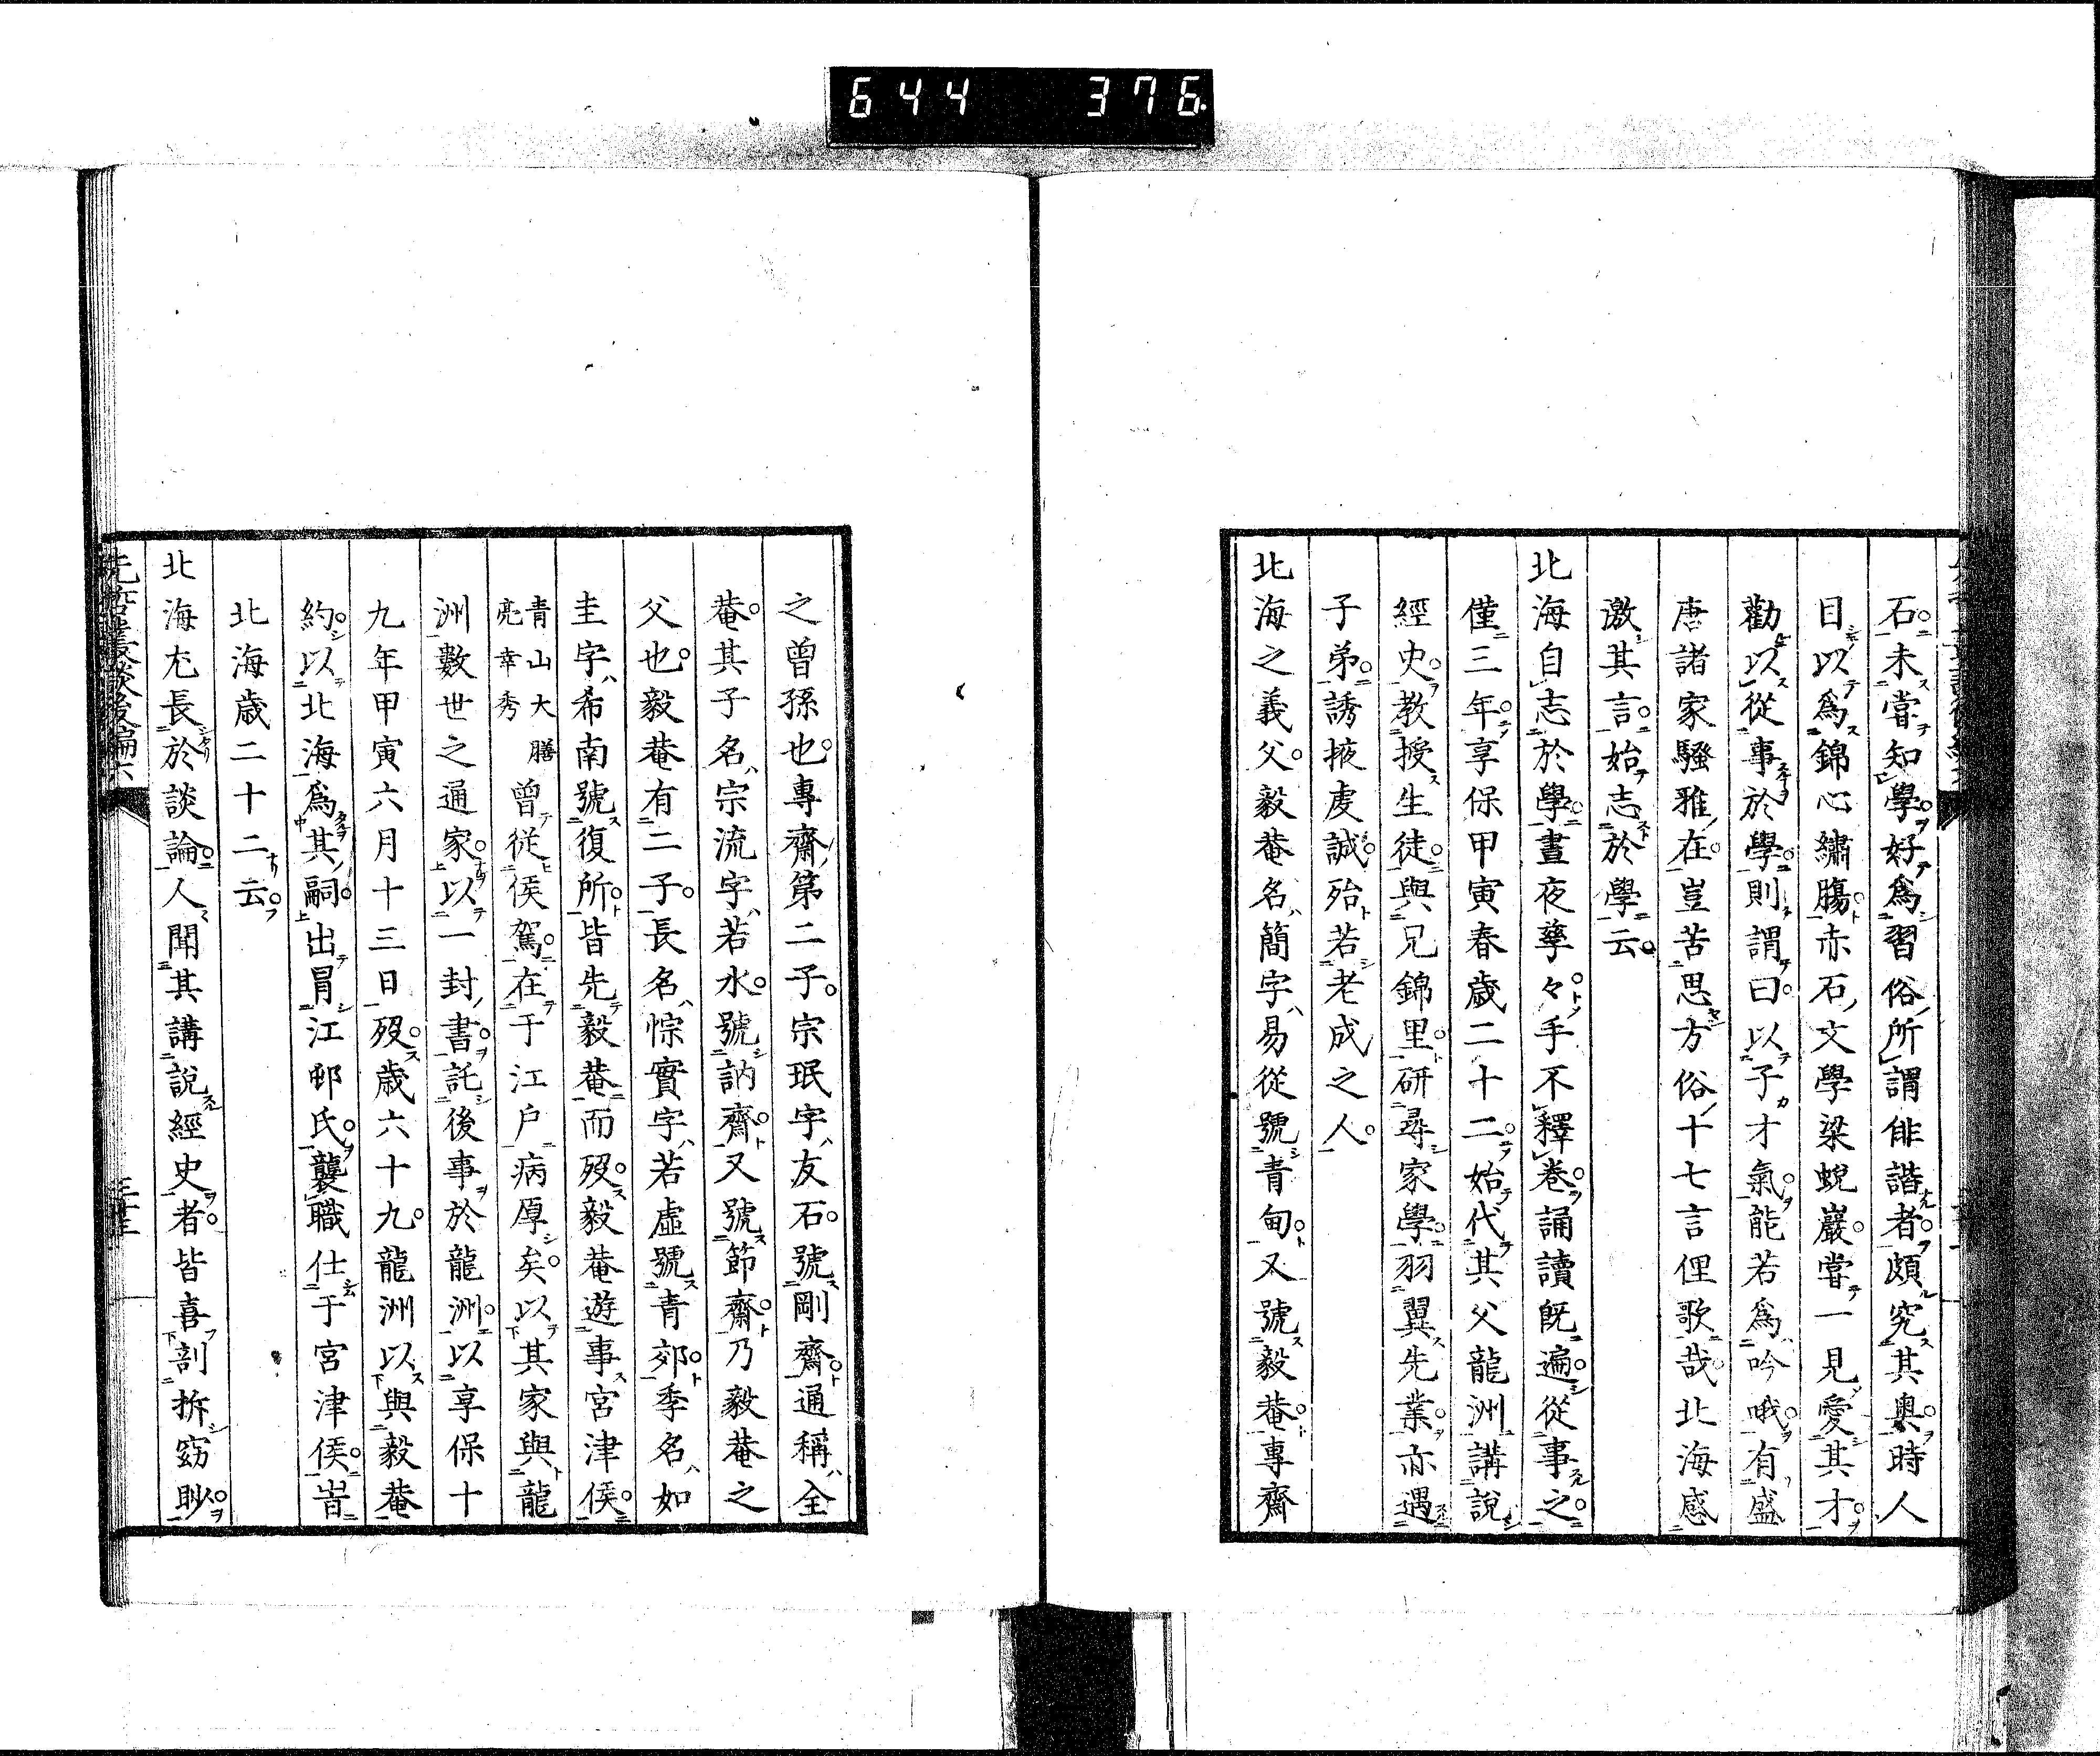 644 376
石未嘗知學好爲習俗所謂俳諧者頗究其奧時人
目以爲錦心繡膓赤石文學梁蛻巖嘗一見愛其才
勸以從事於學則謂曰以子才氣能若爲吟哦有盛
唐諸家騷雅在豈苦思方俗十七言俚歌哉北海感
激其言始志於學云
北海自志於學晝夜孳々手不釋卷誦讀既遍從事之
僅三年享保甲寅春歲二十二始代其父龍洲講說
經史教授生徒與兄錦里研尋家學羽翼先業亦遇
子弟誘掖虔誠殆若老成之人
北海之義父毅菴名簡字易從號青甸又號毅菴專齋
之曾孫也專齋第二子宗珉字友石號剛齋通稱全
菴其子名宗流字若水號訥齋又號節齋乃毅菴之
父也毅菴有二子長名悰實字若虛號青郊季名如
圭字希南號復所皆先毅菴而歿毅菴遊事宮津侯
青山大膳亮幸秀曾從侯駕在于江戶病厚矣以其家與龍
洲數世之通家以一封書託後事於龍洲以享保十
九年甲寅六月十三日歿歲六十九龍洲以與毅菴
約以北海爲其嗣出冒江邨氏襲職仕于宮津侯旹
北海歲二十二云
北海尤長於談論人聞其講說經史者皆喜剖拆窈眇
先哲叢談後編六